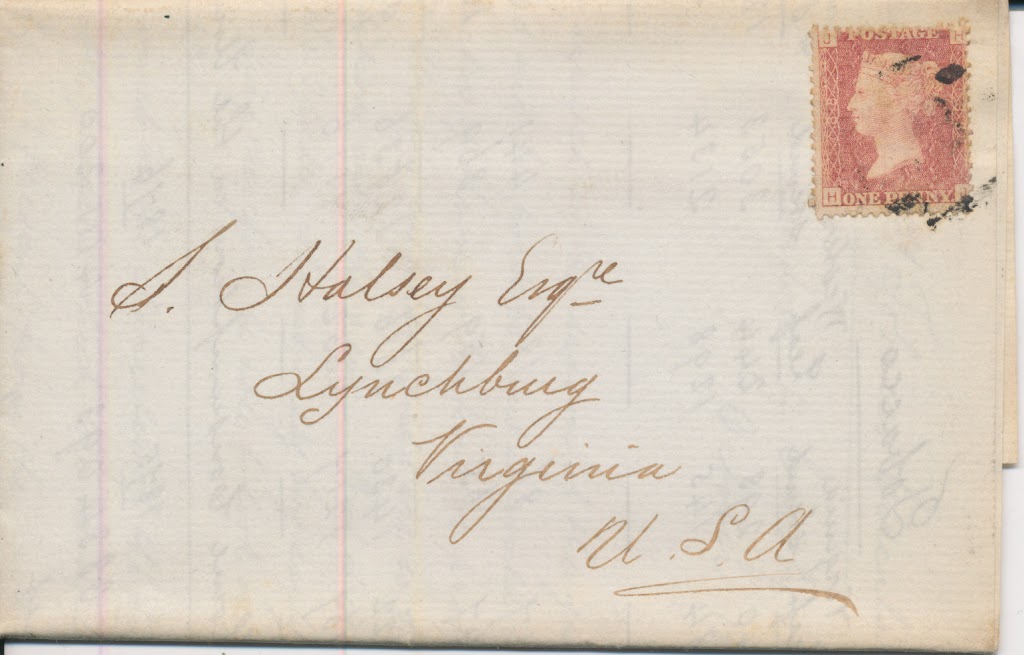 J POSTAGE G
G ONE PENNY J
S. Halsey Esqre
Lynchburg
Virginia
U.S.A